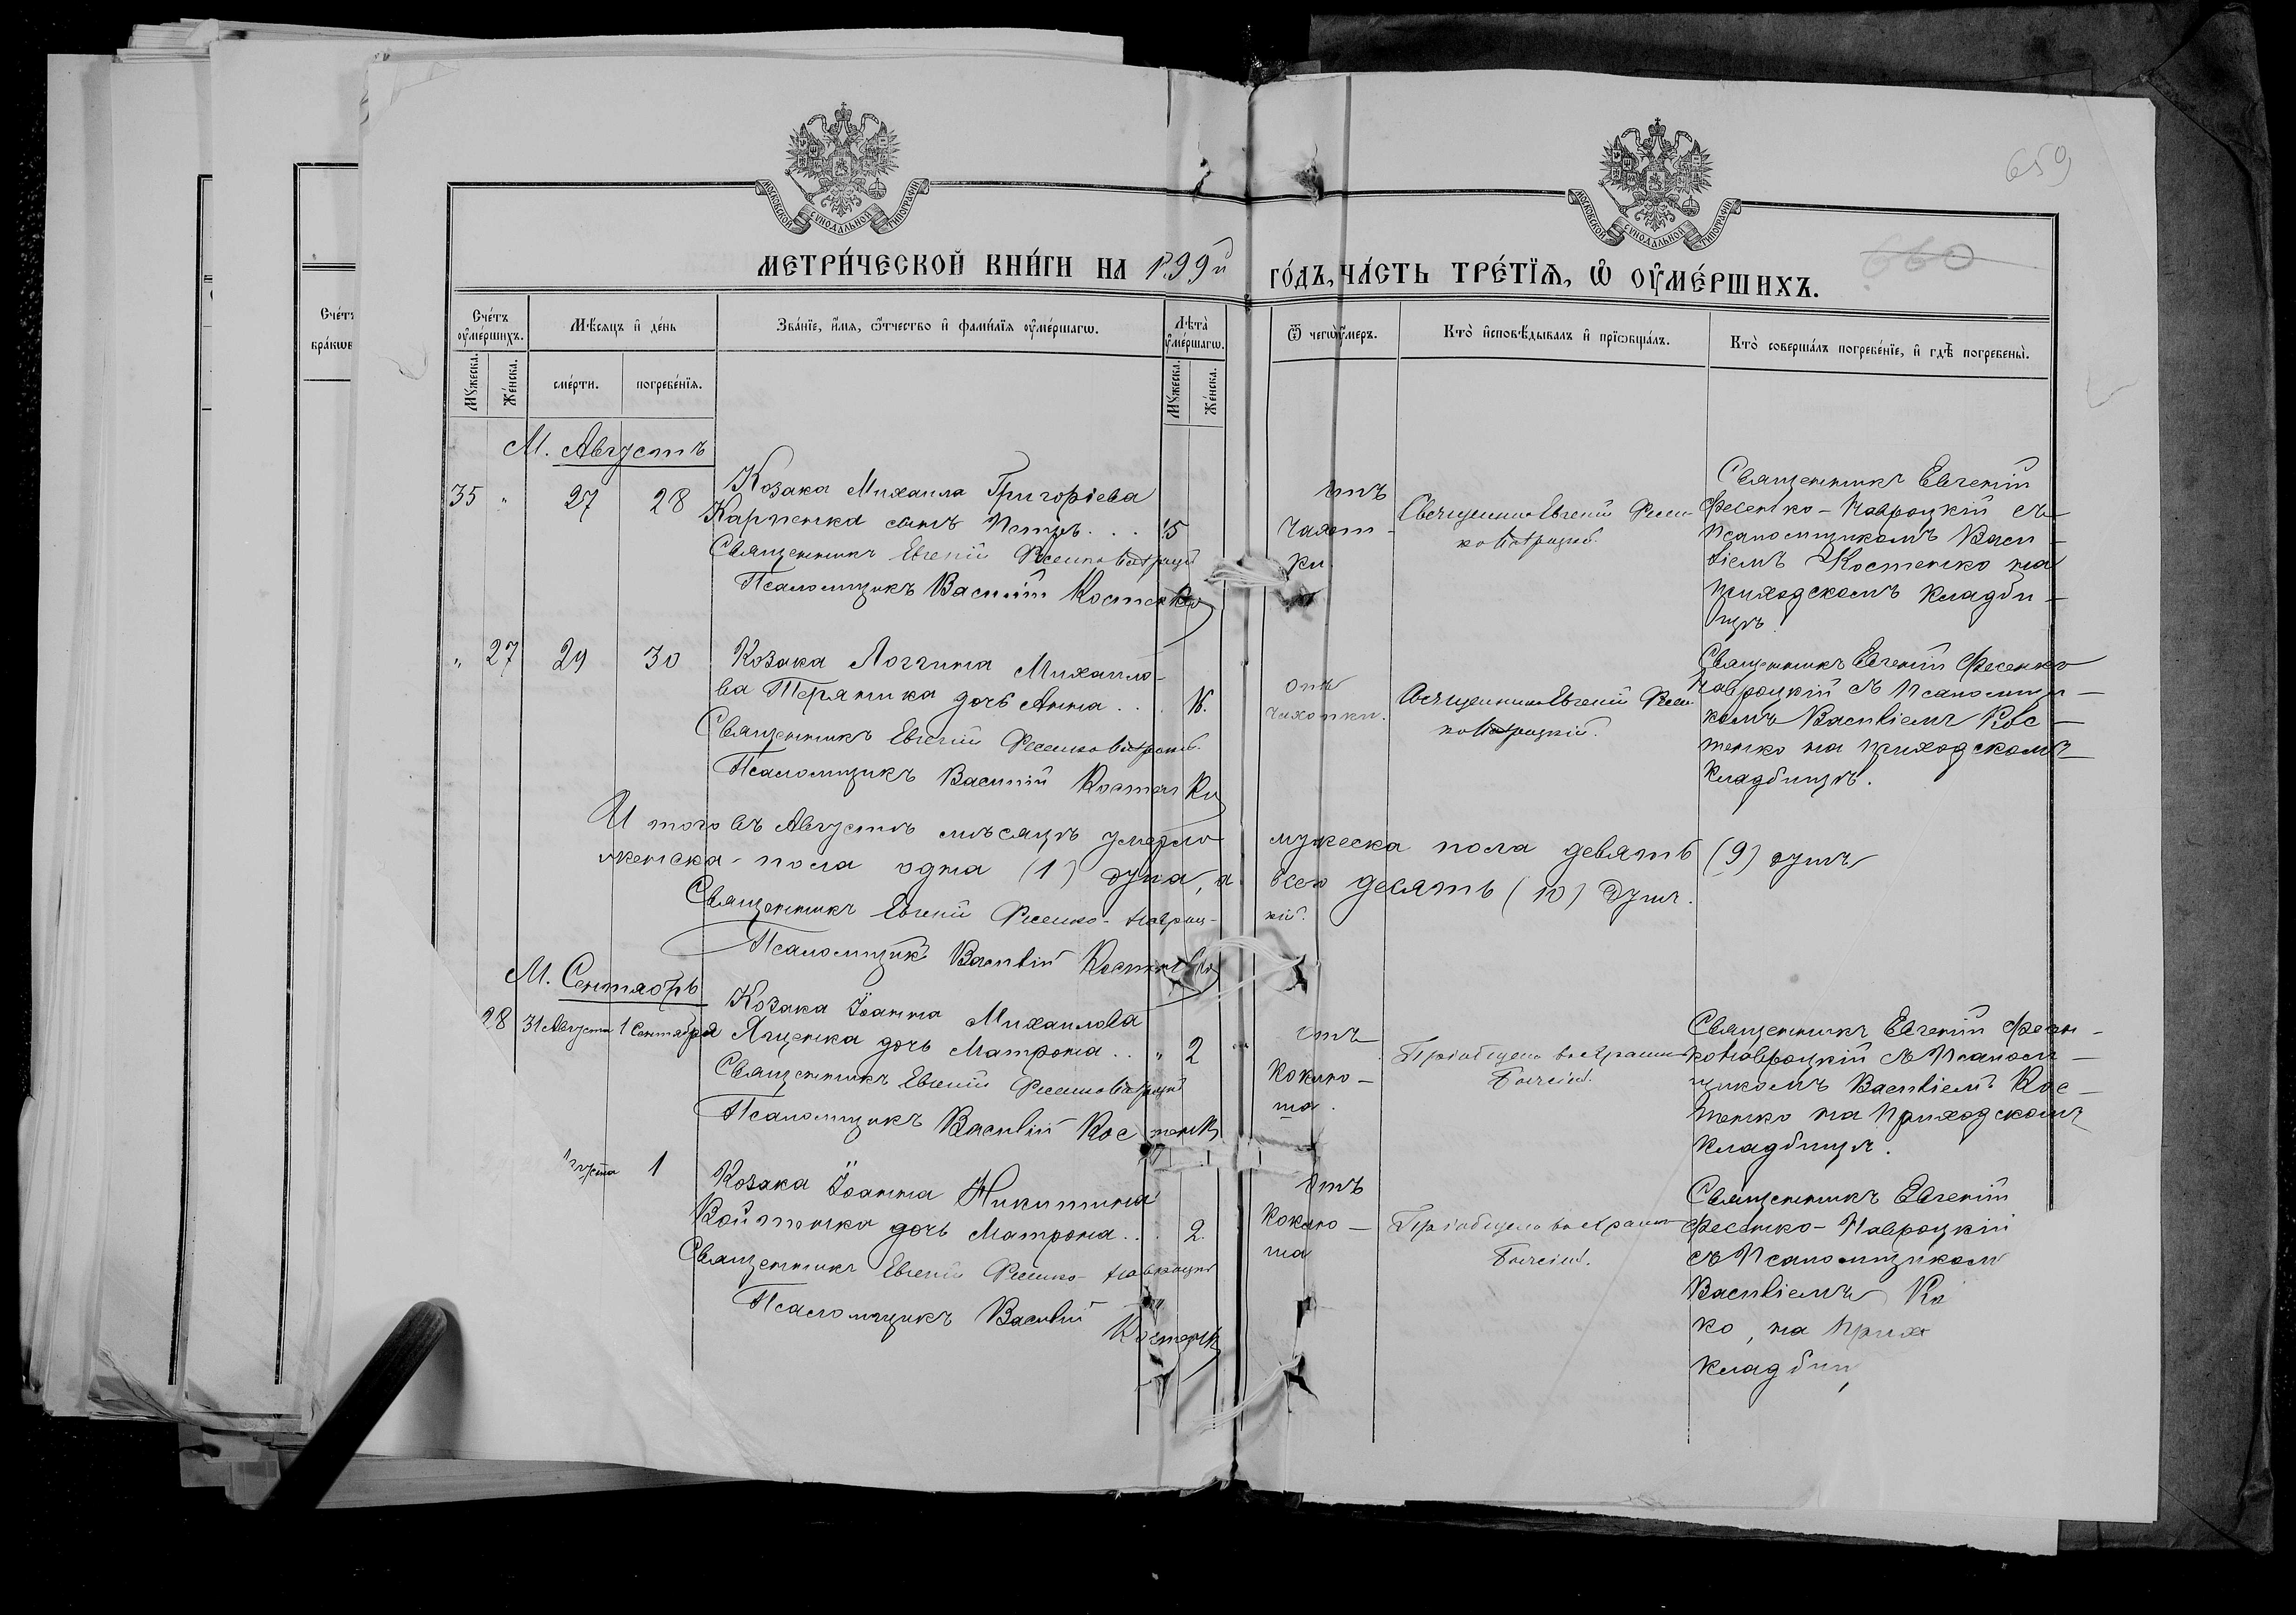 659
660
МОСКОВСКОЙ СѴНОДАЛЬНОЙ ТИПОГРАФІИ
МОСКОВСКОЙ СѴНОДАЛЬНОЙ ТИПОГРАФІИ
МЕТРИ́ЧЕСКОЙ КНИ́ГИ НА 1899й
ГО́ДЪ, ЧА́СТЬ ТРЕ́ТІѦ, Ѡ҆ ОУ҆МЕ́РШИХЪ.
Счетъ
бракѡв
Сче́тъ оу҆ме́ршихъ.
Мꙋ́жеска.
Же́нска.
Мѣ́сѧцъ и҆ де́нь
сме́рти.
погребе́нїѧ.
Зва́нїе, и҆́мѧ, ѻ҆́тчество и҆ фами́лїѧ оу҆ме́ршагѡ.
Лѣта̀ оу҆ме́ршагѡ.
Мꙋ́жеска.
Же́нска.
Ѿ чегѡ̀ оу҆́меръ.
Кто̀ и҆сповѣ́дывалъ и҆ прїѡбща́лъ.
Кто̀ соверша́лъ погребе́нїе, и҆ гдѣ̀ погребены̀.
М. Августъ
35 " 27 28
Козака Михаила Григоріева
Карпенка сынъ Петръ . . . 15
Священникъ Евгеній Фесенко Навроцкій
Псаломщикъ Василій Костенко
отъ
чахот-
ки.
Священникъ Евгеній Фесен-
ко Навроцкій.
Священникъ Евгеній
Фесенко-Навроцкій съ
псаломщикомъ Васи-
ліемъ Костенко на
приходскомъ кладби-
щѣ.
" 27 29 30
Козака Логгина Михаило-
ва дочь Анна . . .
Священникъ Евгеній Фесенко Навроцкій.
Псаломщикъ Василій Костенко
отъ
чахотки.
Священникъ Евгеній Фесен-
ко Навроцкій.
Священникъ Евгеній Фесенко
Навроцкій съ псаломщи-
комъ Василіемъ Кос-
тенко на приходскомъ
кладбищѣ.
И того въ Августѣ мѣсяцѣ умерло мужеска пола девять (9) душъ
женска-пола одна (1) душа, а всего десять (10) душъ.
Священникъ Евгеній Фесенко-Навроц-кій.
Псаломщикъ Василій Костенко
М. Сентябрь
28 31 Августа 1 Сентября
Козака Іоанна Михаилова
Яценка дочь Матрона . . " 2
Священникъ Евгеній Фесенко Навроцкій
Псаломщикъ Василій Костенк
отъ
коклю-
ша.
Пріобщена въ храмѣ
Божіемъ.
Священникъ Евгеній Фесен-
ко Навроцкій съ псалом-
щикомъ Василіемъ Кос-
тенко на приходскомъ
кладбищѣ.
густа 1
Козака Іоанна Никитина
Войтенка дочь Матрона . . . 2.
Священникъ Евгеній Фесенко-Навроцкій
Псаломщикъ Василій
Костенк
отъ
коклю-
ша
Пріобщена въ храмѣ
Божіемъ.
Священникъ Евгеній
Фесенко-Навроцкій
съ псаломщиком
Василіемъ Ко
ко, на прих
кладбищ